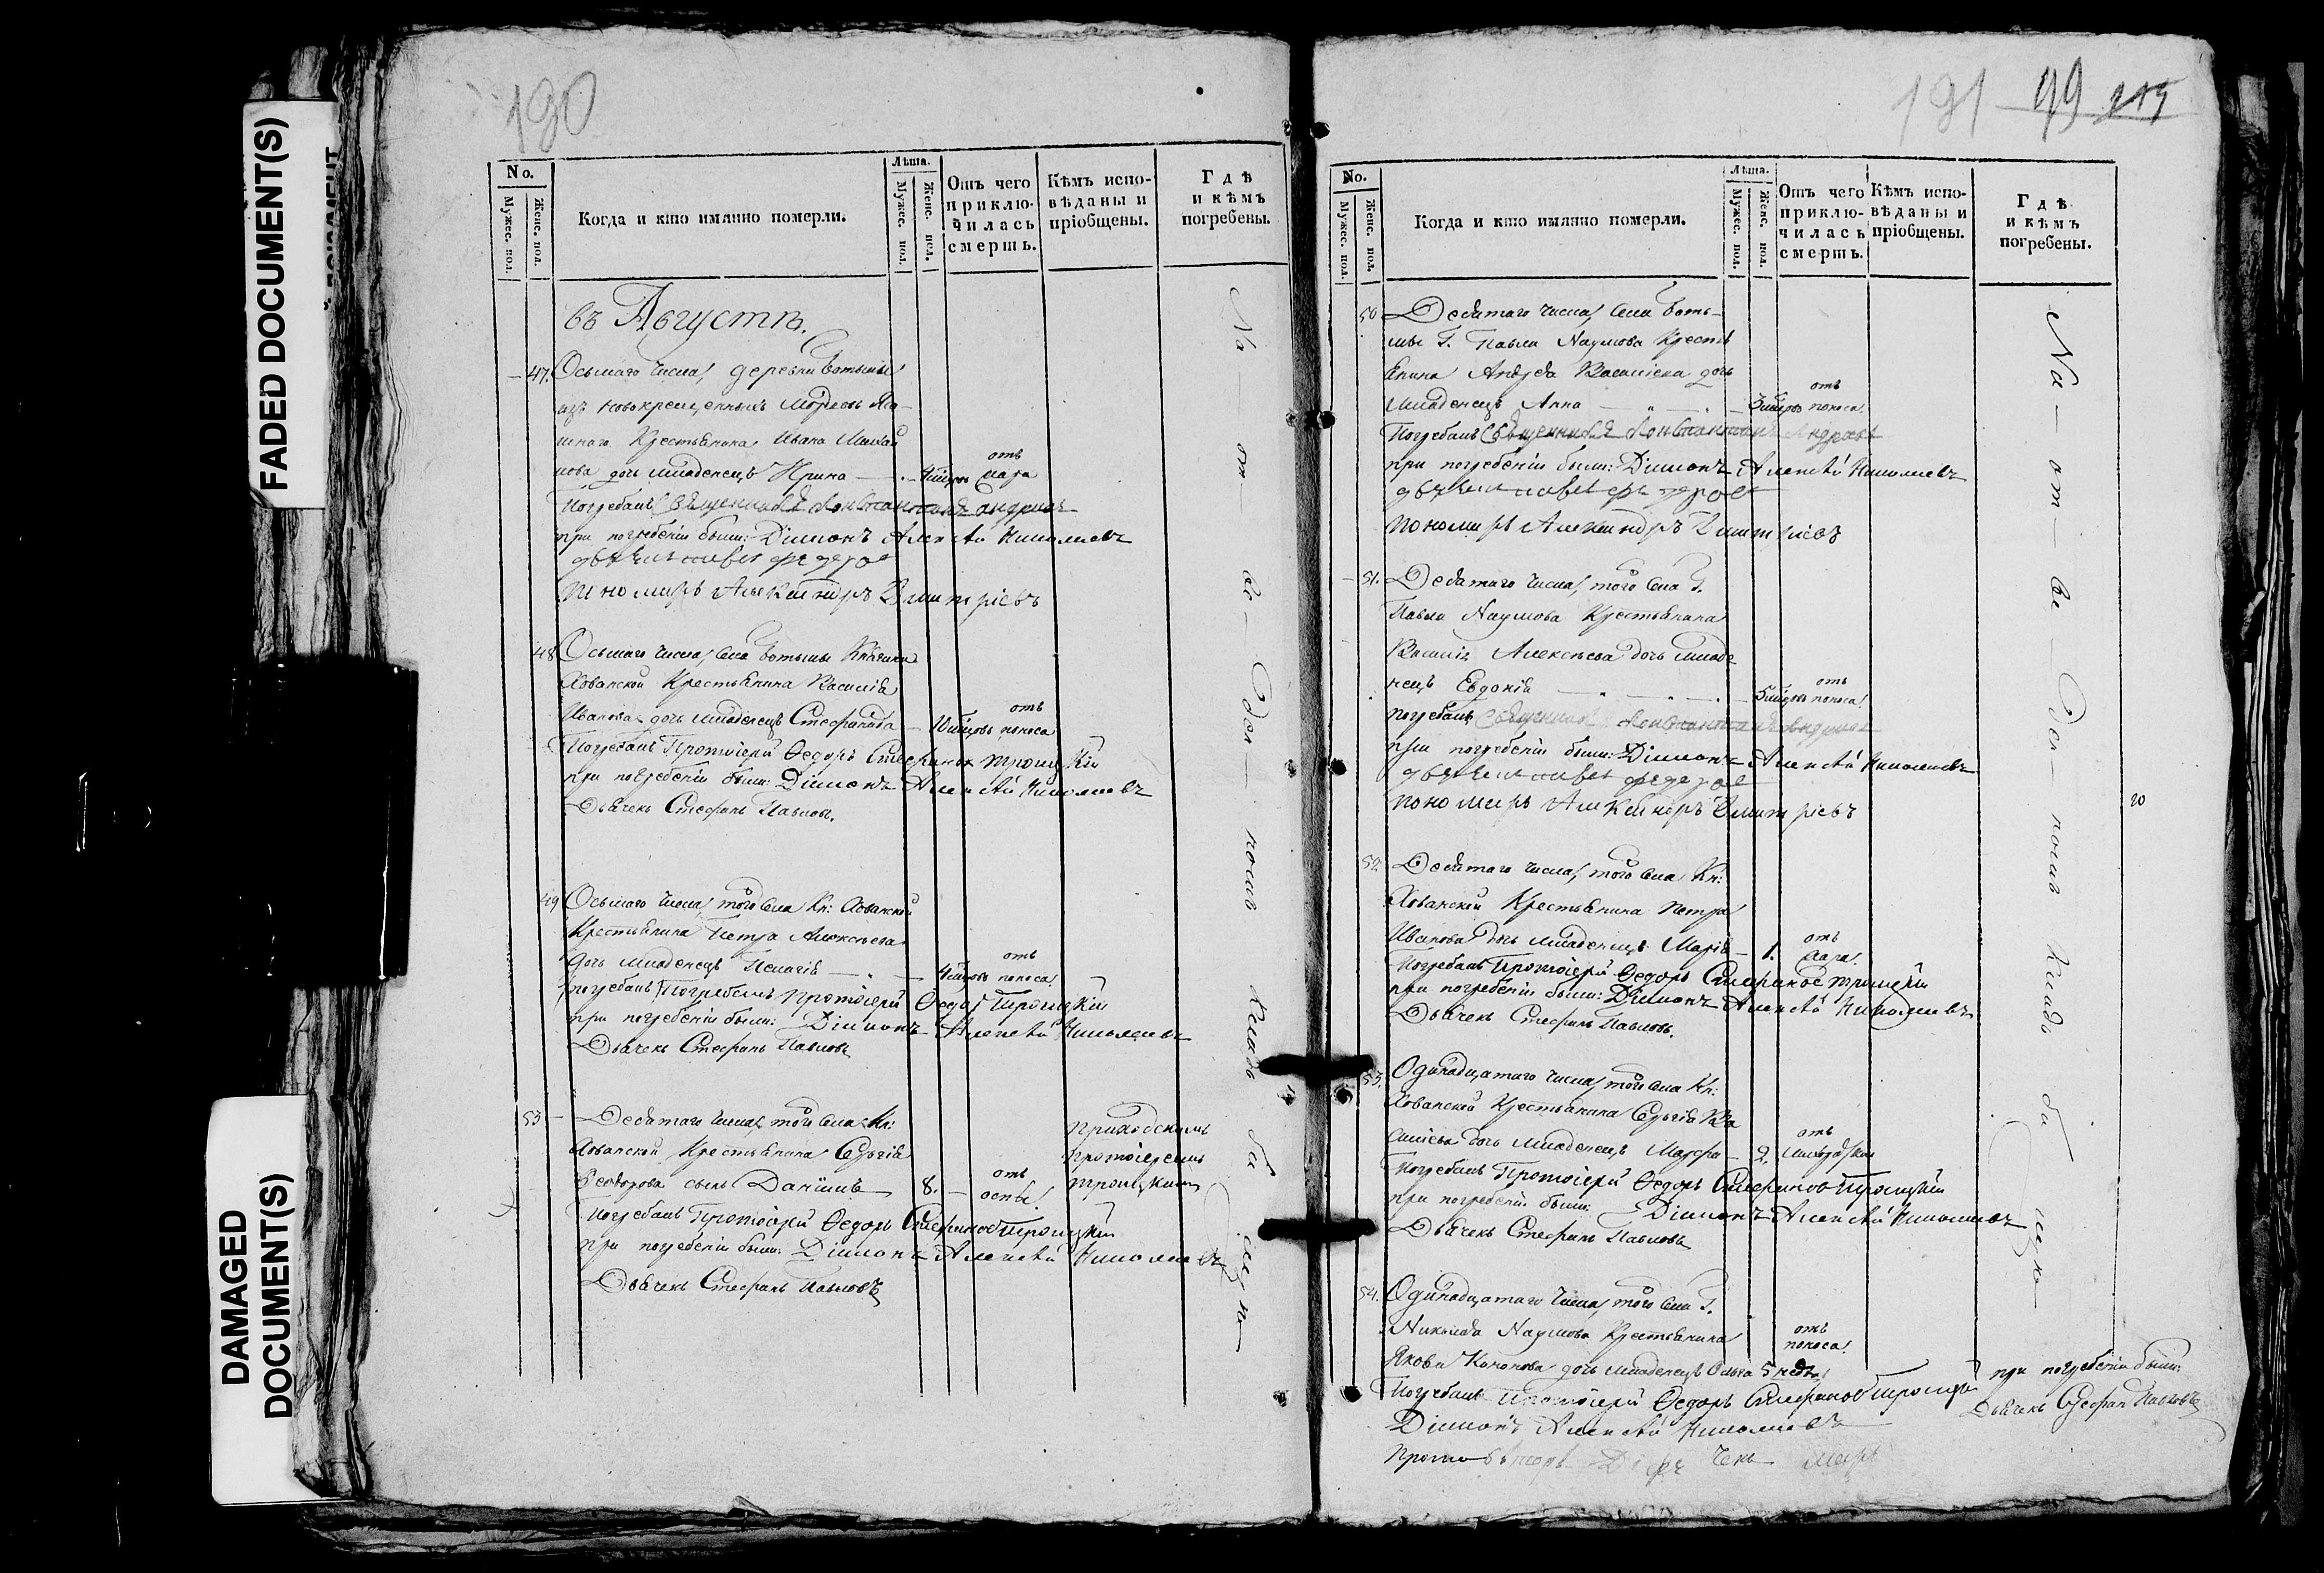 FADED DOCUMENT(S)
DAMAGED
DOCUMENT(S)
190
No.
Мужес. пол.
Женс. пол.
Когда и кто имянно померли.
Лѣта.
Мужес. пол.
Женс. пол.
Отъ чего
приклю-
чилась
смерть.
Кѣмъ испо-
вѣданы и
пріобщены.
Гдѣ
и кѣмъ
погребены.
въ Августѣ.
47. Осьмаго числа, деревни
изъ новокрещенныхъ Мордвы
Крестьянина Ивана Михай
лова дочь младенецъ Ирина отъ
Погребалъ Священникъ Константинъ
при погребеніи были: Діаконъ Алексѣй Николаевъ
Пономарь Александръ Дмитріевъ
48 Осьмаго числа, села Княгини
Хованской Крестьянина Василія
Иванова дочь младенецъ Стефанида 10 мцовъ отъ поноса
Погребалъ Протоіерей Ѳедоръ Стефановъ Троицкій
при погребеніи были: Діаконъ Алексѣй Николаевъ
Дьячекъ Стефанъ Павловъ.
49 Осьмаго числа, того села Кн: Хованской
Крестьянина Петра Алексѣева
дочь младенецъ Пелагія 4 мцовъ отъ поноса
погребалъ Погребалъ Протоіерей Ѳедоръ Троицкій
при погребеніи были: Діаконъ Алексѣй Николаевъ
Дьячекъ Стефанъ Павловъ
53 Десятаго числа, того села Кн:
Хованской Крестьянина Сергія
Ѳеодорова сынъ Даніилъ 8. отъ оспы
Приходскимъ
Протоіереемъ
Троицкимъ
Погребалъ Протоіерей Ѳедоръ Стефановъ Троицкій
при погребеніи были: Діаконъ Алексѣй Николаевъ
Дьячекъ Стефанъ Павловъ
На от ве ден номъ кладь би щѣ
191 99
No.
Мужес. пол.
Женс. пол.
Когда и кто имянно померли.
Лѣта.
Мужес. пол.
Женс. пол.
Отъ чего
приклю-
чилась
смерть.
Кѣмъ испо-
вѣданы и
пріобщены.
Гдѣ
и кѣмъ
погребены.
50 Десятаго числа, села
Г. Павла Наумова Кресть
янина Андрея Василіева дочь
младенецъ Анна 3 мцовъ отъ поноса.
Погребалъ Священникъ Константинъ
при погребеніи были: Діаконъ Алексѣй Николаевъ
Пономарь Александръ Дмитріевъ
51. Десятаго числа, того села Г.
Павла Наумова Крестьянина
Василія Алексѣева дочь младе
нецъ Евдокія 5 мцовъ отъ поноса.
погребалъ Священникъ Константинъ
при погребеніи были: Діаконъ Алексѣй Николаевъ
Пономарь Александръ Дмитріевъ
52 Десятаго числа, того села Кн:
Хованской Крестьянина Петра
Иванова дочь младенецъ Марія 1. отъ
Погребалъ Протоіерей Ѳедоръ Стефановъ Троицкій
при погребеніи были: Діаконъ Алексѣй Николаевъ
Дьячекъ Стефанъ Павловъ.
53. Одинадцатаго числа, того села Кн:
Хованской Крестьянина Сергія Ва
силіева дочь младенецъ Марфа 2. отъ
Погребалъ Протоіерей Ѳедоръ Стефановъ Троицкій
при погребеніи были: Діаконъ Алексѣй Николаевъ
Дьячекъ Стефанъ Павловъ
54. Одинадцатаго числа, того села Г.
Наумова Крестьянина
Якова дочь младенецъ Ольга 5 недѣль отъ поноса.
Погребалъ Протоіерей Ѳедоръ Стефановъ Троицкій при погребеніи были:
Діаконъ Алексѣй Николаевъ Дьячекъ Стефанъ Павловъ
На от ве ден номъ кладь би щѣ
20